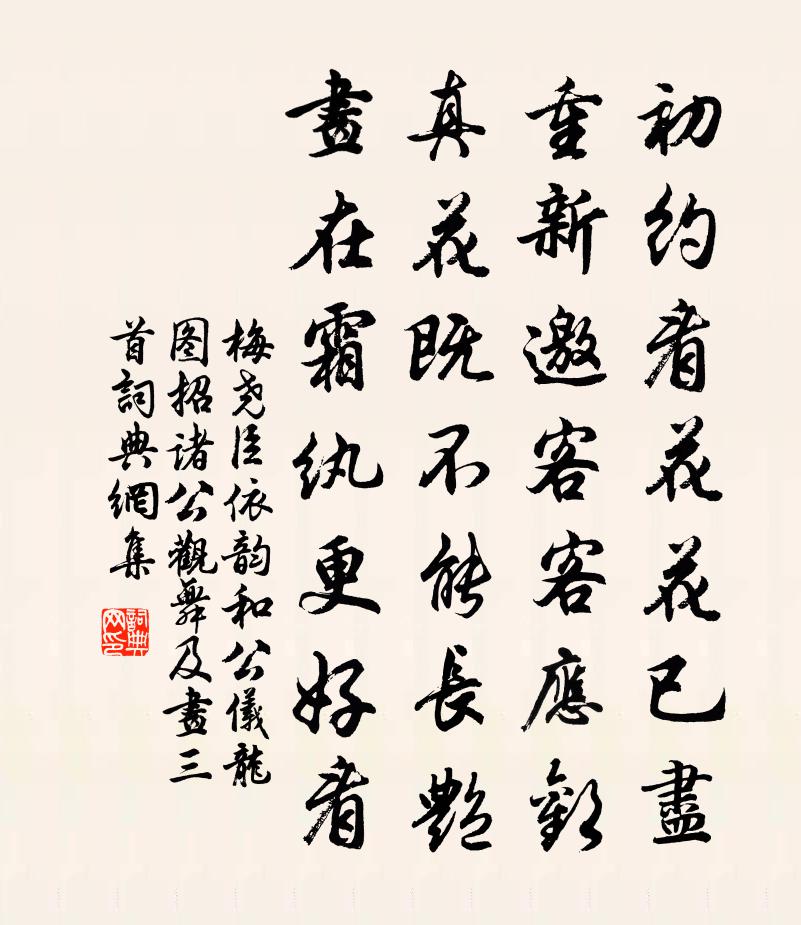 初约看花花已盡
重新邀客客應歡
真花既不能長艷
畫在霜纨更好看
梅尧臣依韵和公儀龍
图招诸公觀舞及畫三
首詞典網集
詞典网印